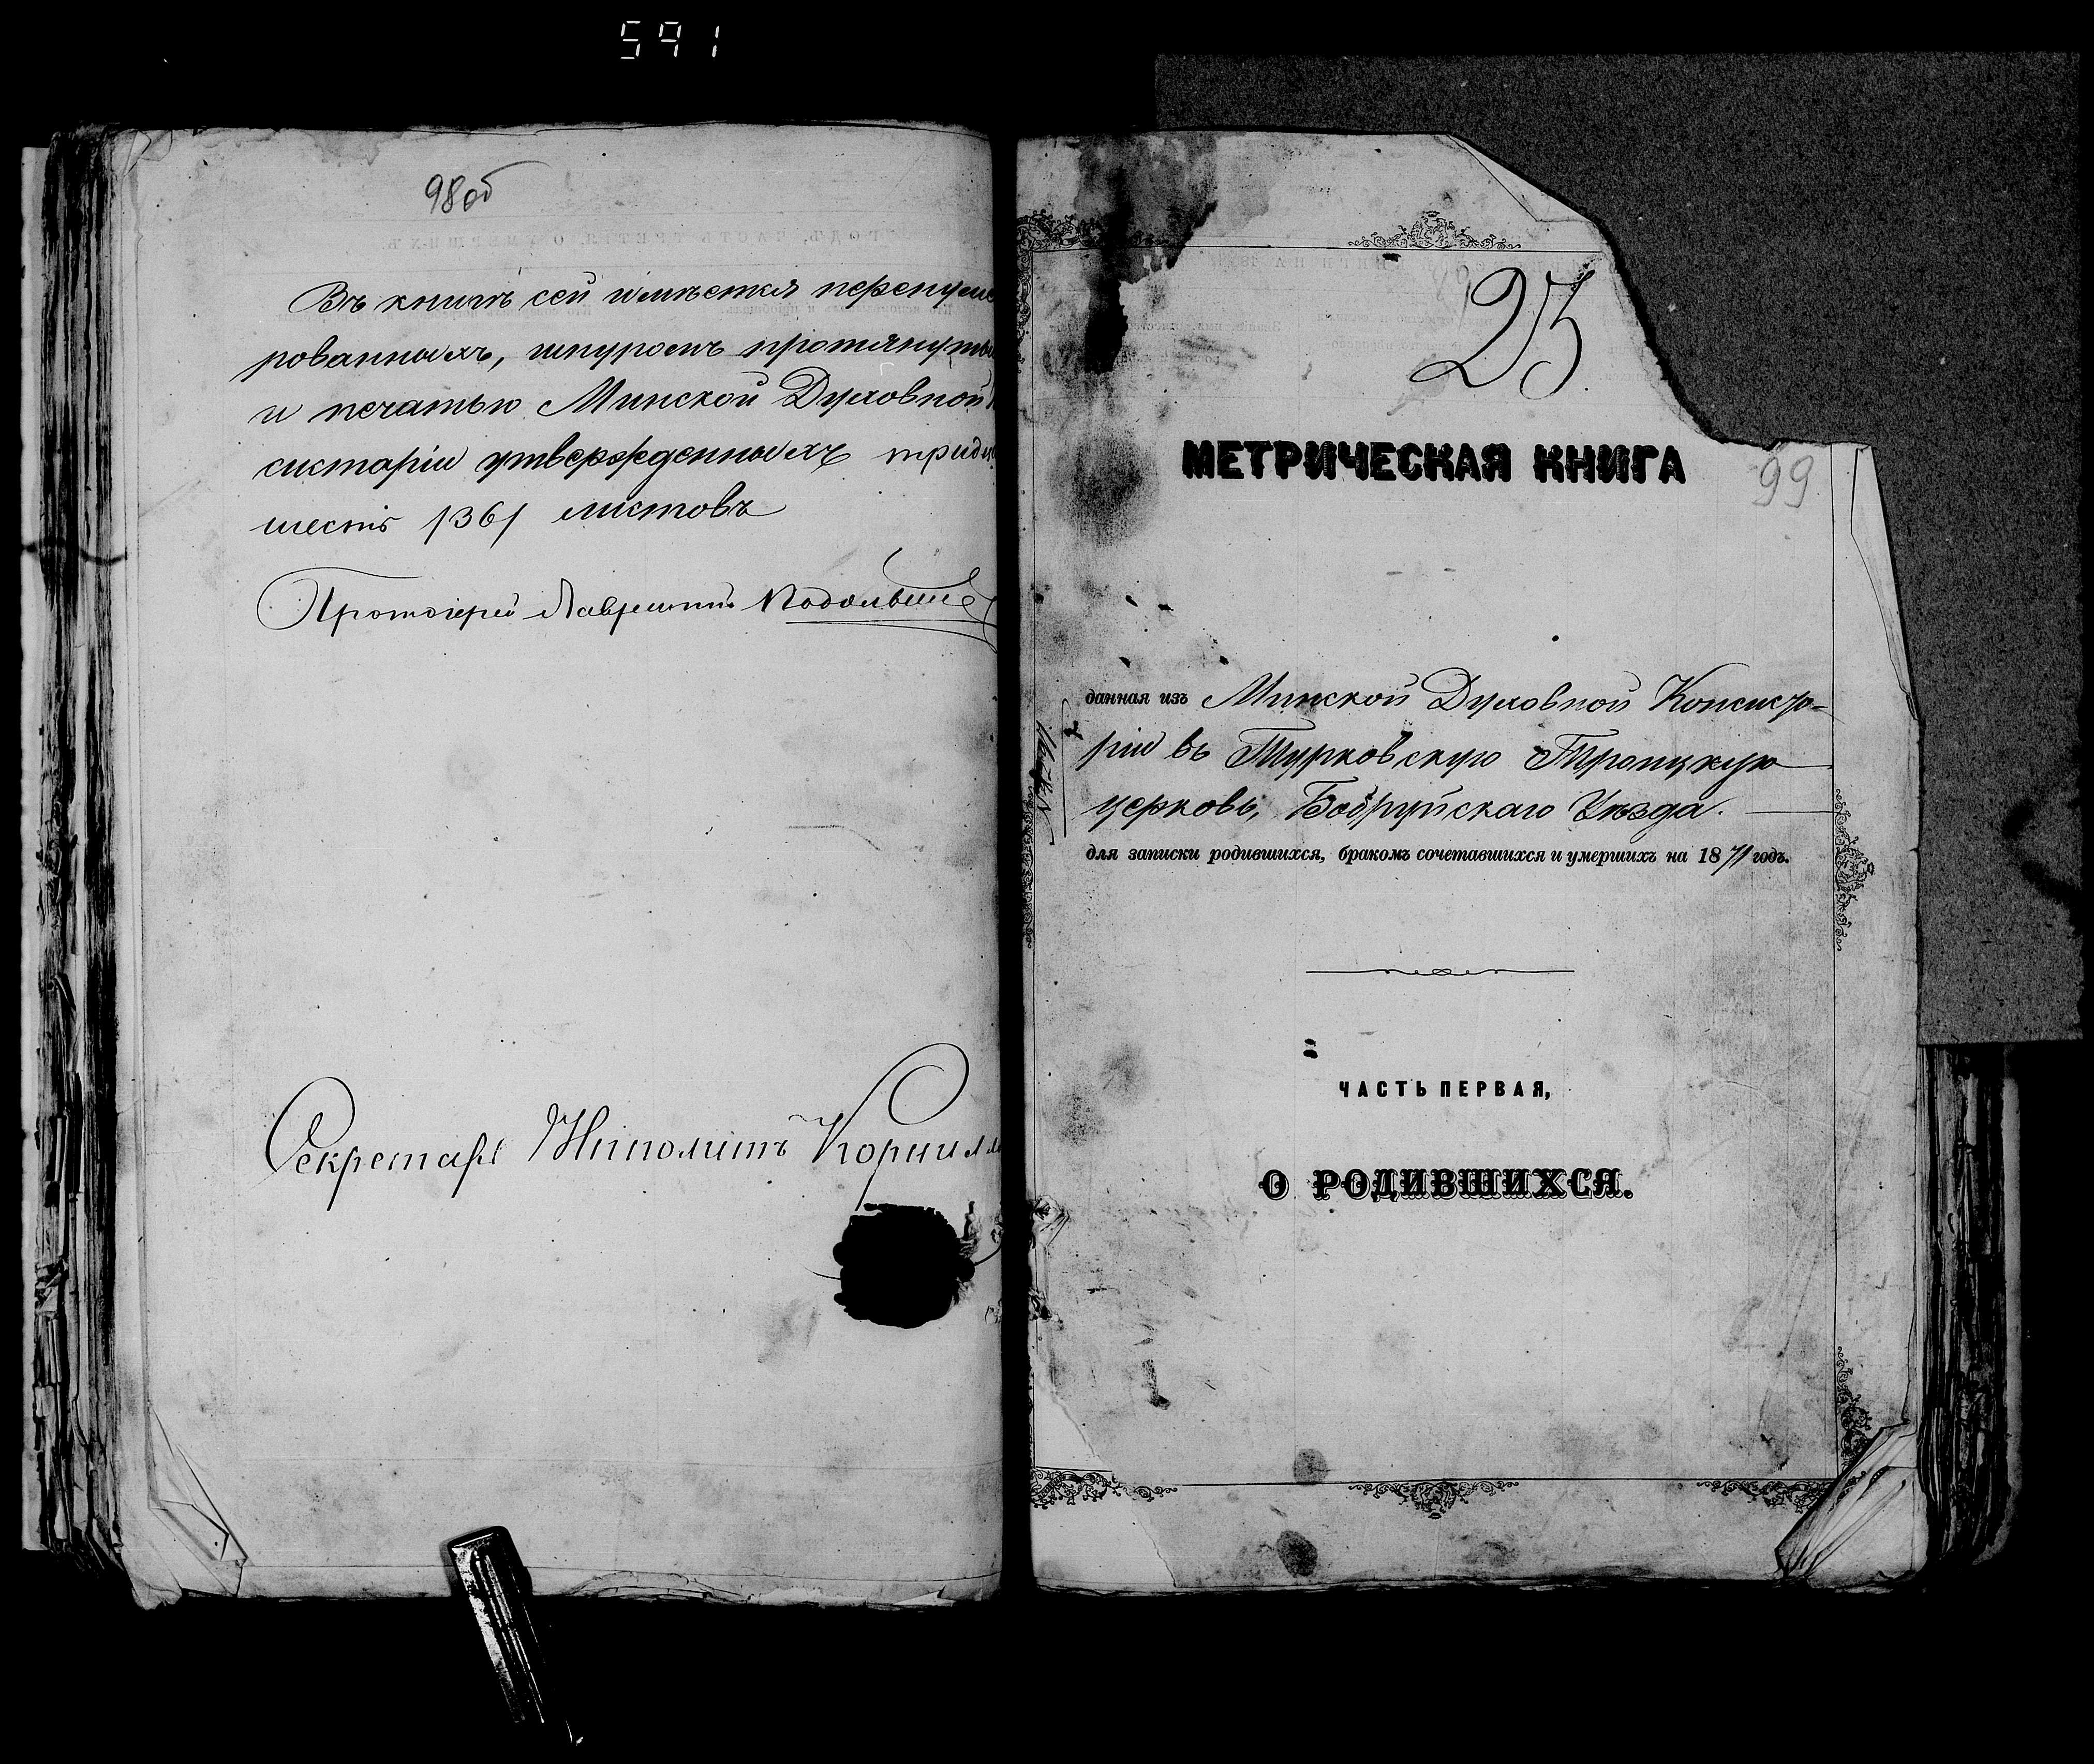 591
98об
Въ книгѣ сей имѣется перенуме
рованныхъ, шнуромъ протянуты
и печатью Минской Духовной
систаріи утвержденныхъ тридц
шесть /36/ листовъ
Протоіерей Лаврентій
Секретарь Иполитъ Корнил
25
МЕТРИЧЕСКАЯ КНИГА
99
данная изъ Минской Духовной Консисто-
ріи въ Турковскую Троицкую
церковь, Бобруйскаго Уѣзда.
для записки родившихся, бракомъ сочетавшихся и умершихъ на 1871 годъ.
ЧАСТЬ ПЕРВАЯ,
О РОДИВШИХСЯ.